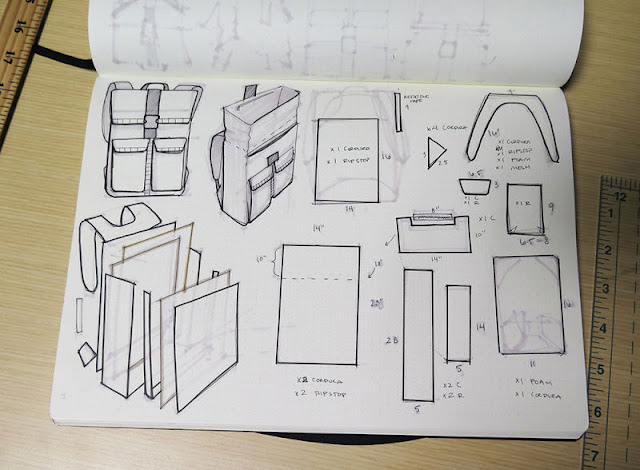 REFLECTIVE
TAPE
x1 CORDURA
x1 RIPSTOP
16
14
x4 CORDURA
3
2.5
16"
x1 CORDURA
x1 RIPSTOP
x1 FOAM
x1 MESH
6.5
3
x1 C
x1 R
x1 R
9
6.5
8"
x1 C
10"
14"
14"
10"
18"
x2 CORDURA
x2 RIPSTOP
28
5
14
5
x2 C
x2 R
16
11
x1 FOAM
x1 CORDURA
12
1
2
3
4
5
6
7
16
15